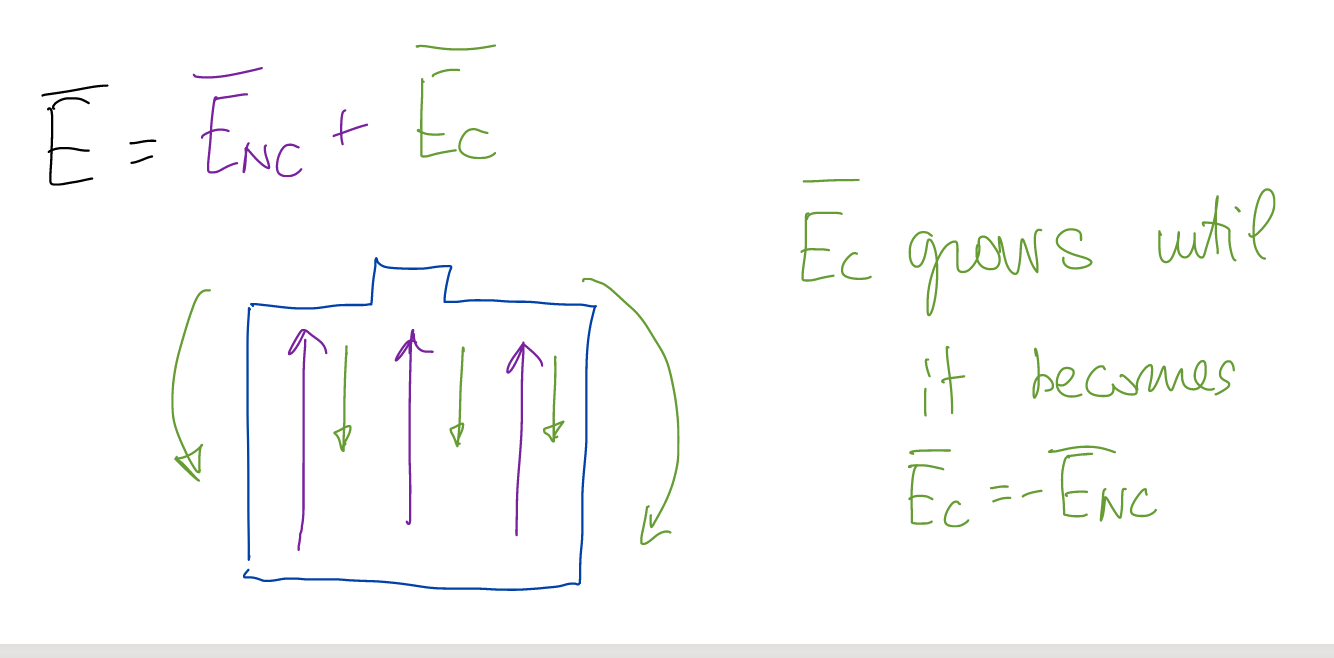 E̅ = E̅NC + E̅C
E̅C grows until
it becomes
E̅C = - E̅NC